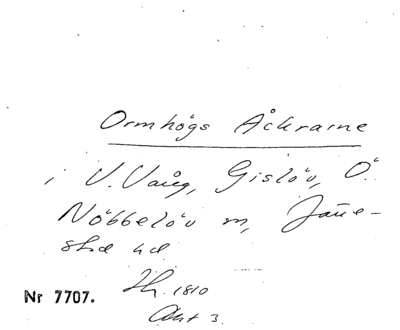 Ormhögs Åckrarne
i V. Vång, Gislöv, Ö.
Nöbbelöv m, Järre-
stad hd
Nr 7707.
1810
Akt 3